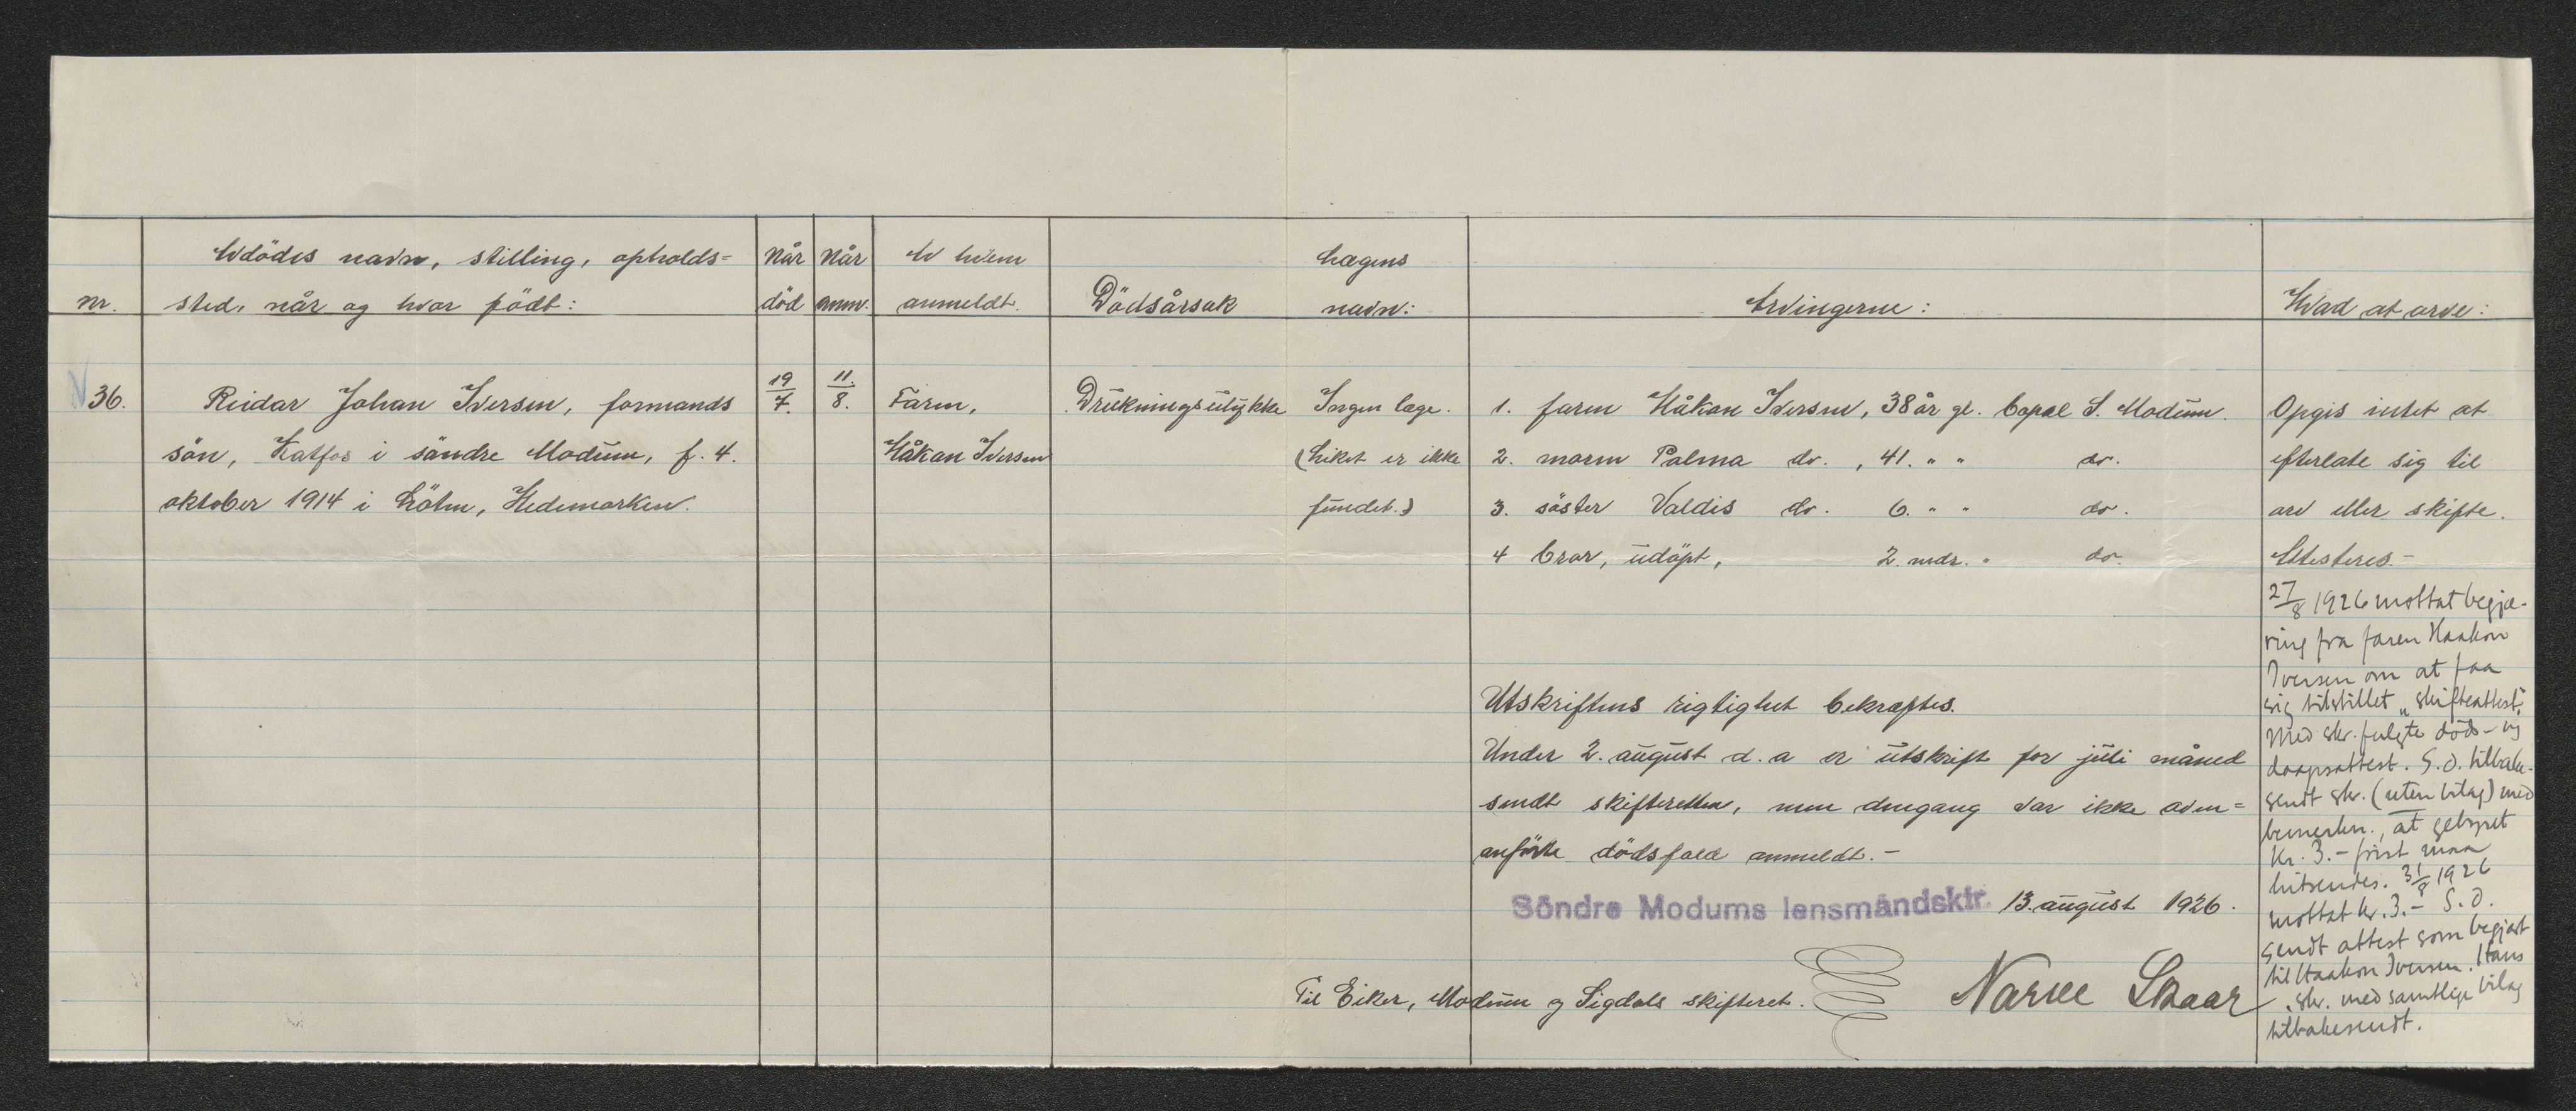 nr.
Avdödes navn, stilling, opholds=
sted, når og hvor födt:
Når
död
Når
anm.
Av hvem
anmeldt.
Dödsårsak
Lægens
navn:
Arvingerne:
Hvad at arve:
36.
Reidar Johan Iversen, formands
sön, Katfos i söndre Modum, f. 4.
oktober 1914 i Löten, Hedemarken.
19/7.
11./8.
Faren,
Håkan Iversen
Drukningsulykke
Ingen læge.
(Liket er ikke
fundet.)
1. faren Håkan Iversen, 38 år gl. bopæl S. Modum.
2. moren Palma do. , 41. " " do.
3. söster Valdis do. 6. " " do.
4 bror, udöpt, 2. mdr. " do.
Opgis intet at
efterlate sig til
arv eller skifte.
Attesteres.-
27/8 1926 mottat begjæ-
ring fra faren Haakon
Iversen om at faa
sig tilstillet "skifteattest".
Med skr. fulgte döds- og
daapsattest. S.D. tilbake-
sendt skr. (uten bilag) med
bemerkn., at gebyret
kr. 3.- först maa
hitsendes. 31/8 1926
mottat kr. 3.- S.D.
sendt attest som begjært
til Haakon Iversen. Hans
skr. med samtlige bilag
tilbakesendt.
Utskriftens rigtighet bekræftes.
Under 2. august d.a er utskrift for juli måned
sendt skifteretten, men dengang var ikke oven=
anförte dödsfald anmeldt.-
Söndre Modums lensmandsktr. 13. august 1926.
Til Eiker, Modum og Sigdals skifteret.
Narve Skaar